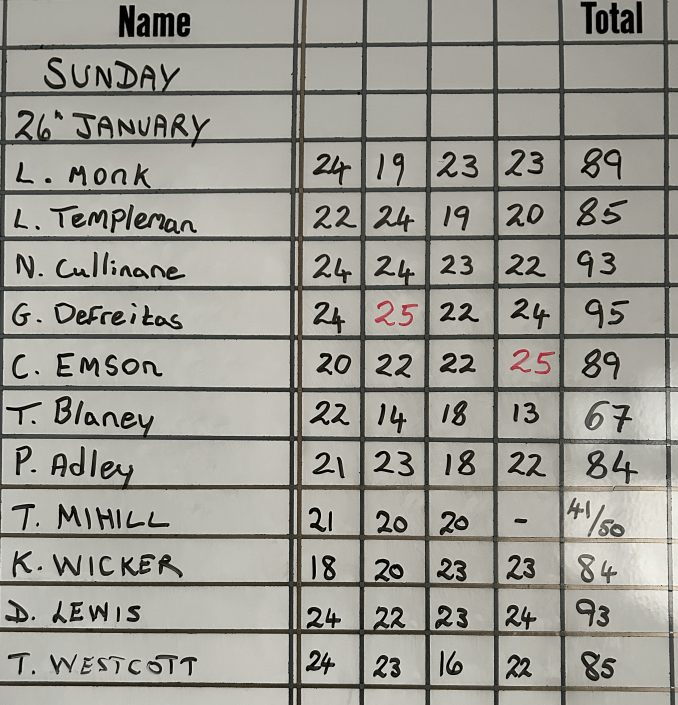 Name Total
SUNDAY
26th JANUARY
L. Monk 24 19 23 23 89
L. Templeman 22 24 19 20 85
N. Cullinane 24 24 23 22 93
G. Defreitas 24 25 22 24 95
C. EMSON 20 22 22 25 89
T. Blaney 22 14 18 13 67
P. Adley 21 23 18 22 84
T. MIHILL 21 20 20 - 41/50
K. WICKER 18 20 23 23 84
D. LEWIS 24 22 23 24 93
T. WESTCOTT 24 23 16 22 85